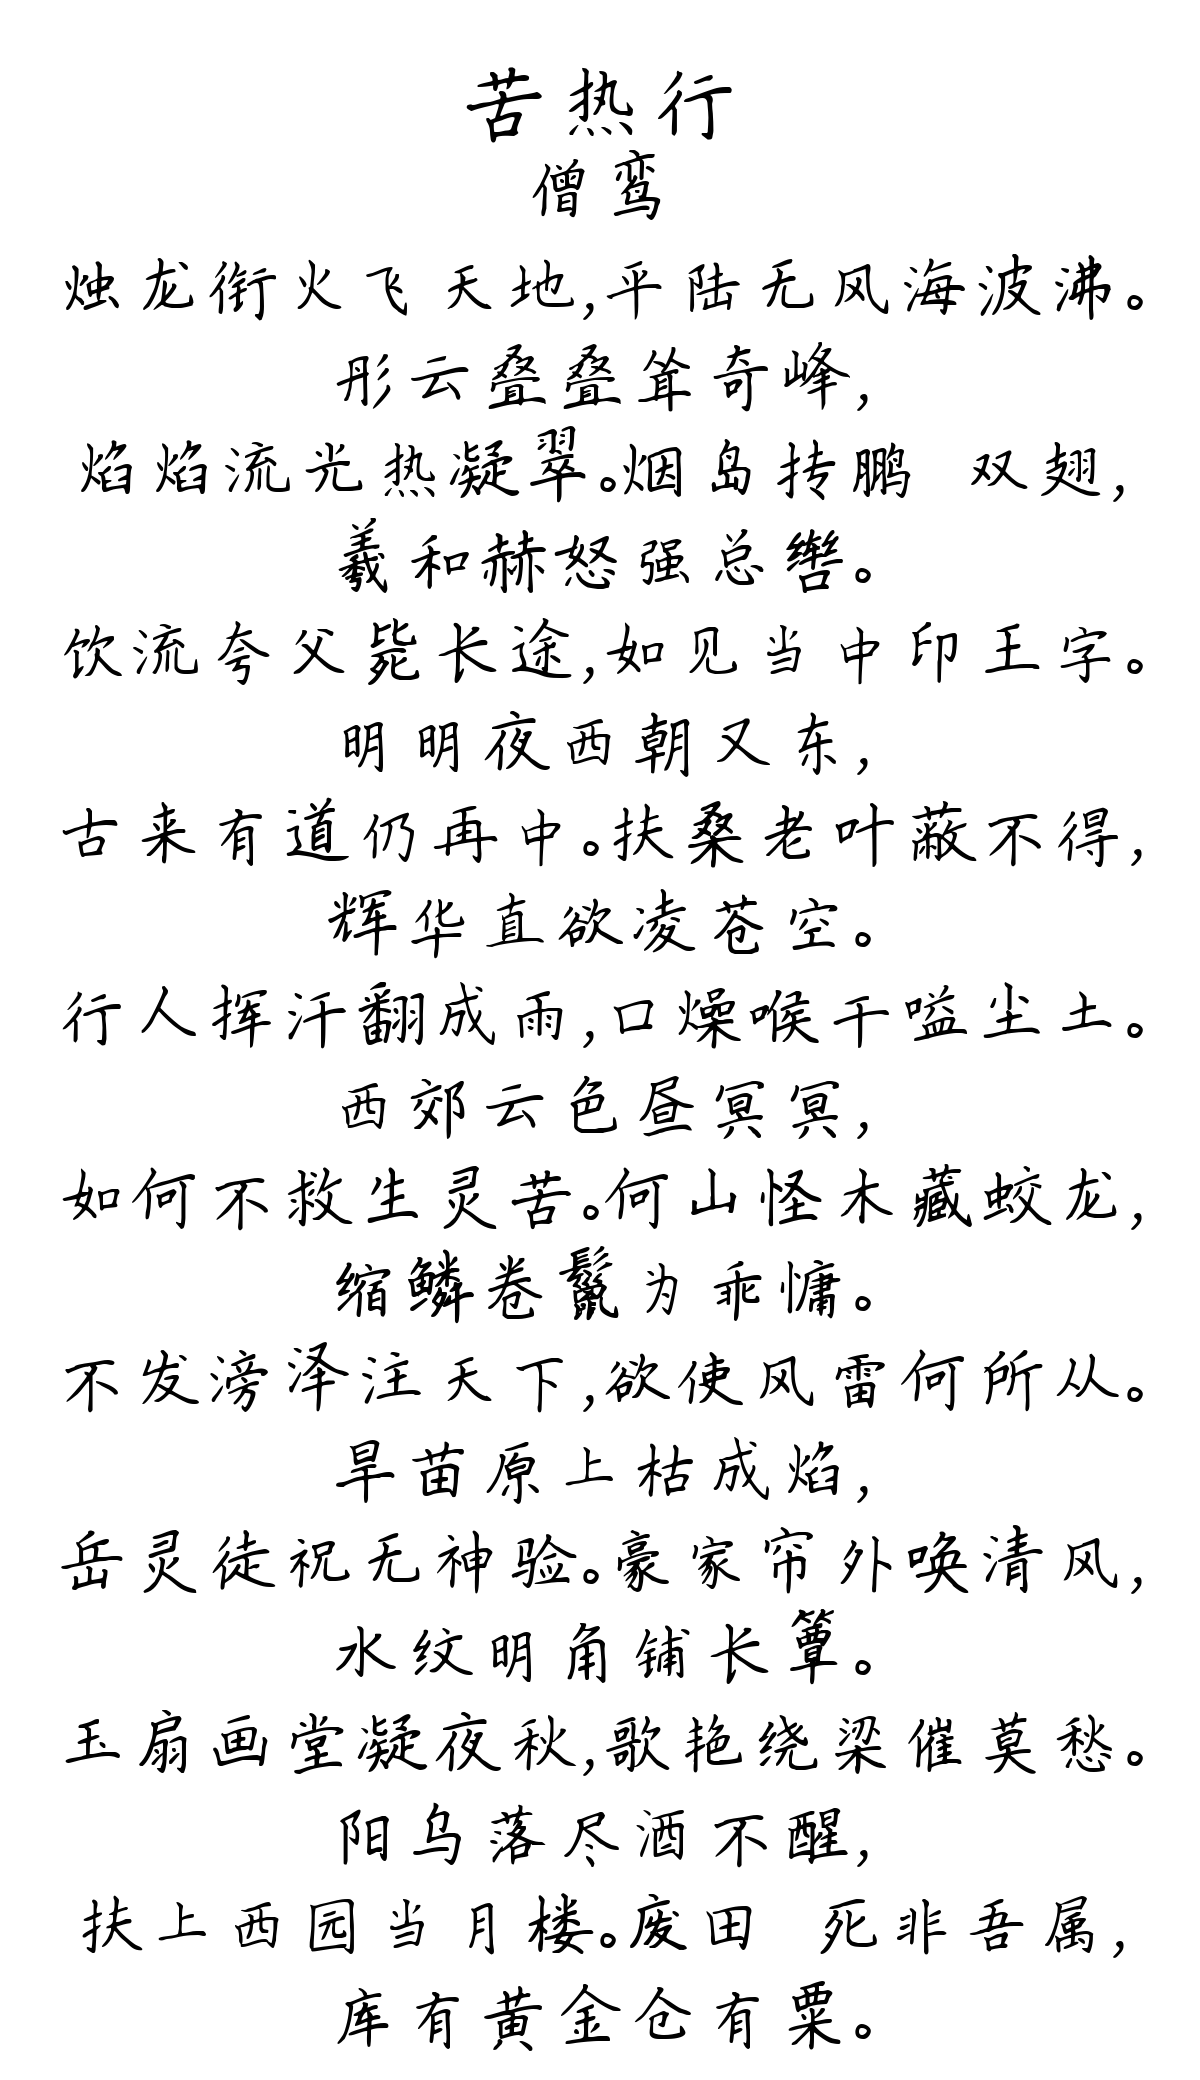 苦热行
僧鸾
烛龙衔火飞天地,平陆无风海波沸。
彤云叠叠耸奇峰,
焰焰流光热凝翠。烟岛抟鹏 双翅,
羲和赫怒强总辔。
饮流夸父毙长途,如见当中印王字。
明明夜西朝又东,
古来有道仍再中。扶桑老叶蔽不得,
辉华直欲凌苍空。
行人挥汗翻成雨,口燥喉干嗌尘土。
西郊云色昼冥冥,
如何不救生灵苦。何山怪木藏蛟龙,
缩鳞卷鬣为乖慵。
不发滂泽注天下,欲使风雷何所从。
旱苗原上枯成焰,
岳灵徒祝无神验。豪家帘外唤清风,
水纹明角铺长簟。
玉扇画堂凝夜秋,歌艳绕梁催莫愁。
阳乌落尽酒不醒,
扶上西园当月楼。废田 死非吾属,
库有黄金仓有粟。